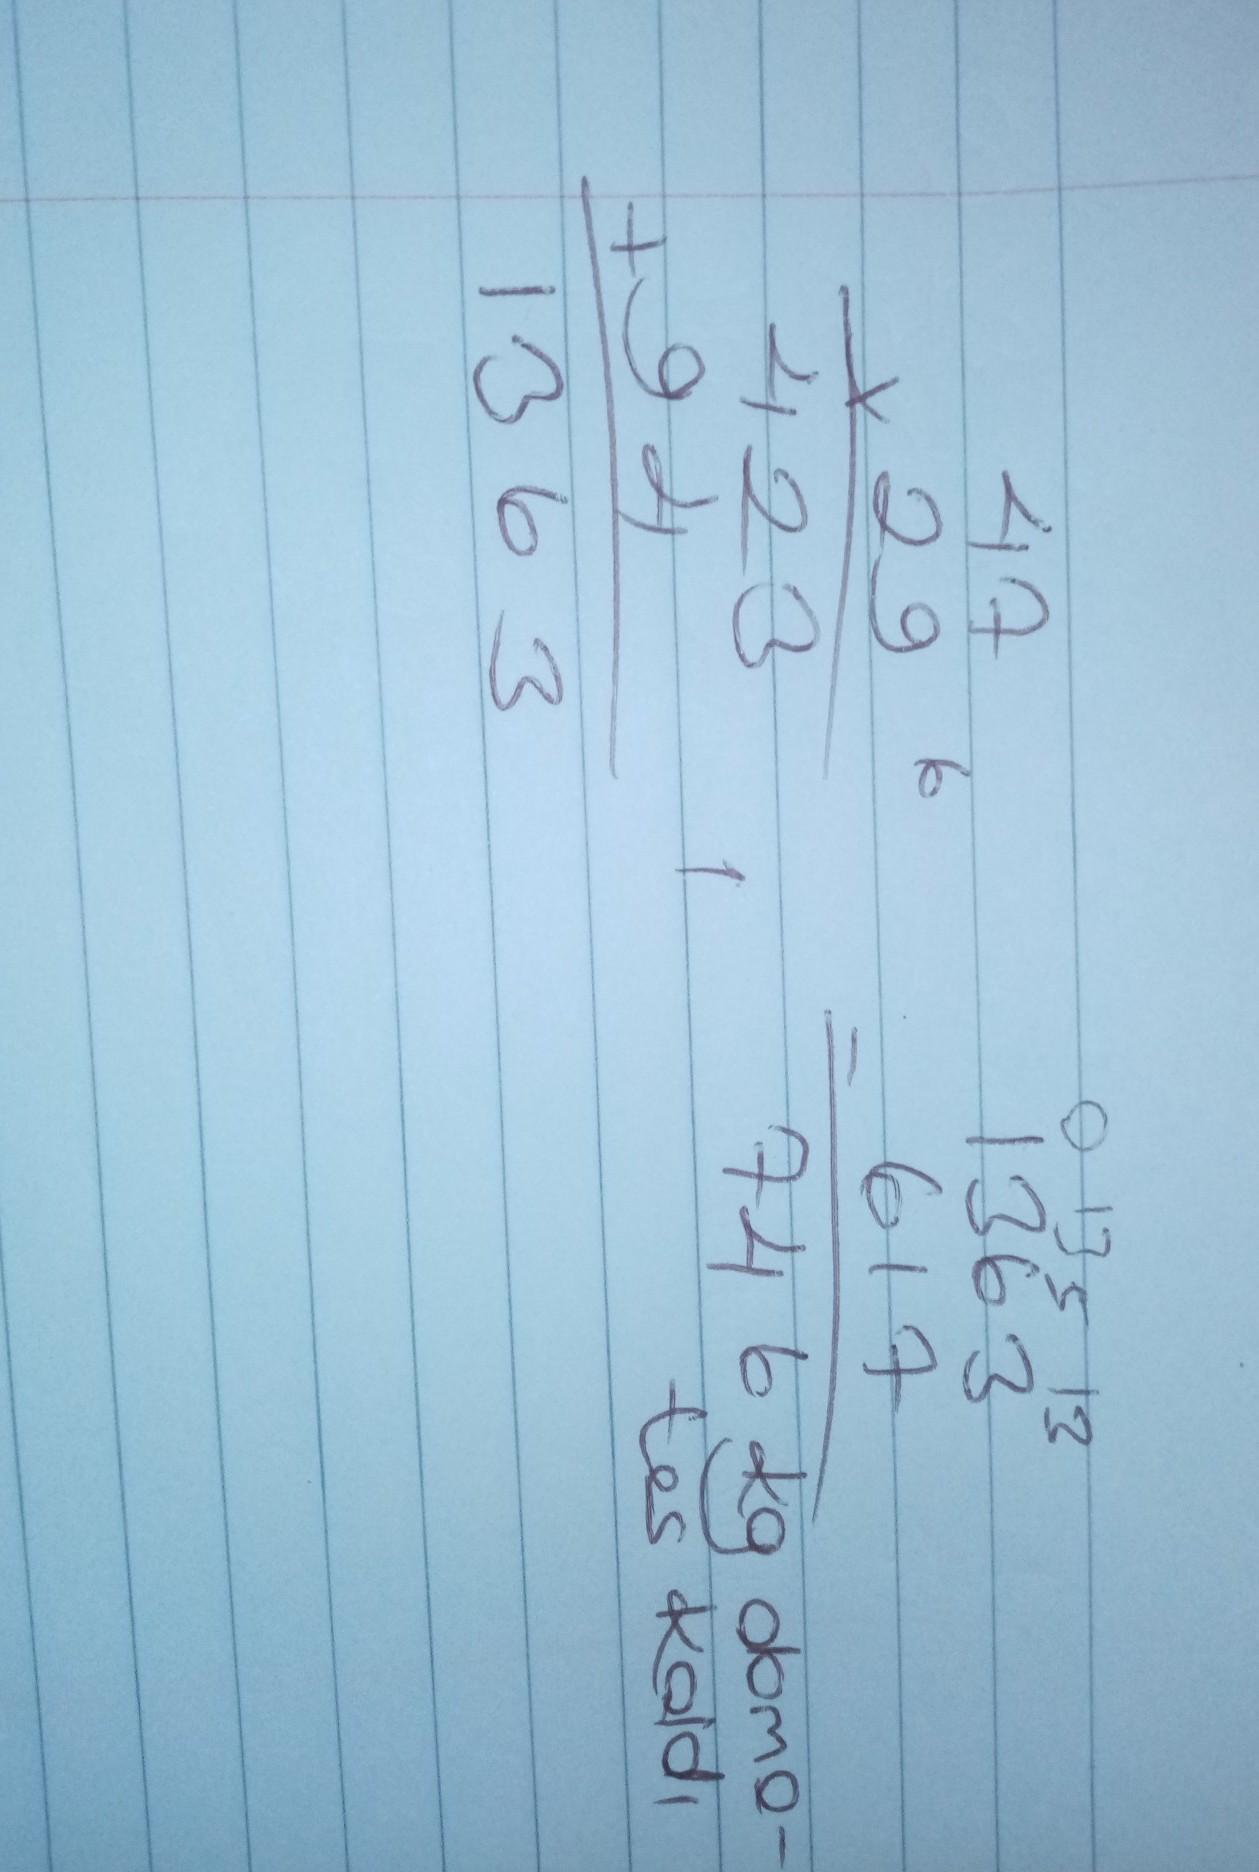 47
x 29
6
423
1
+ 94
1363
0 13 5 13
1363
- 617
746 kg doma-
tes kaldı